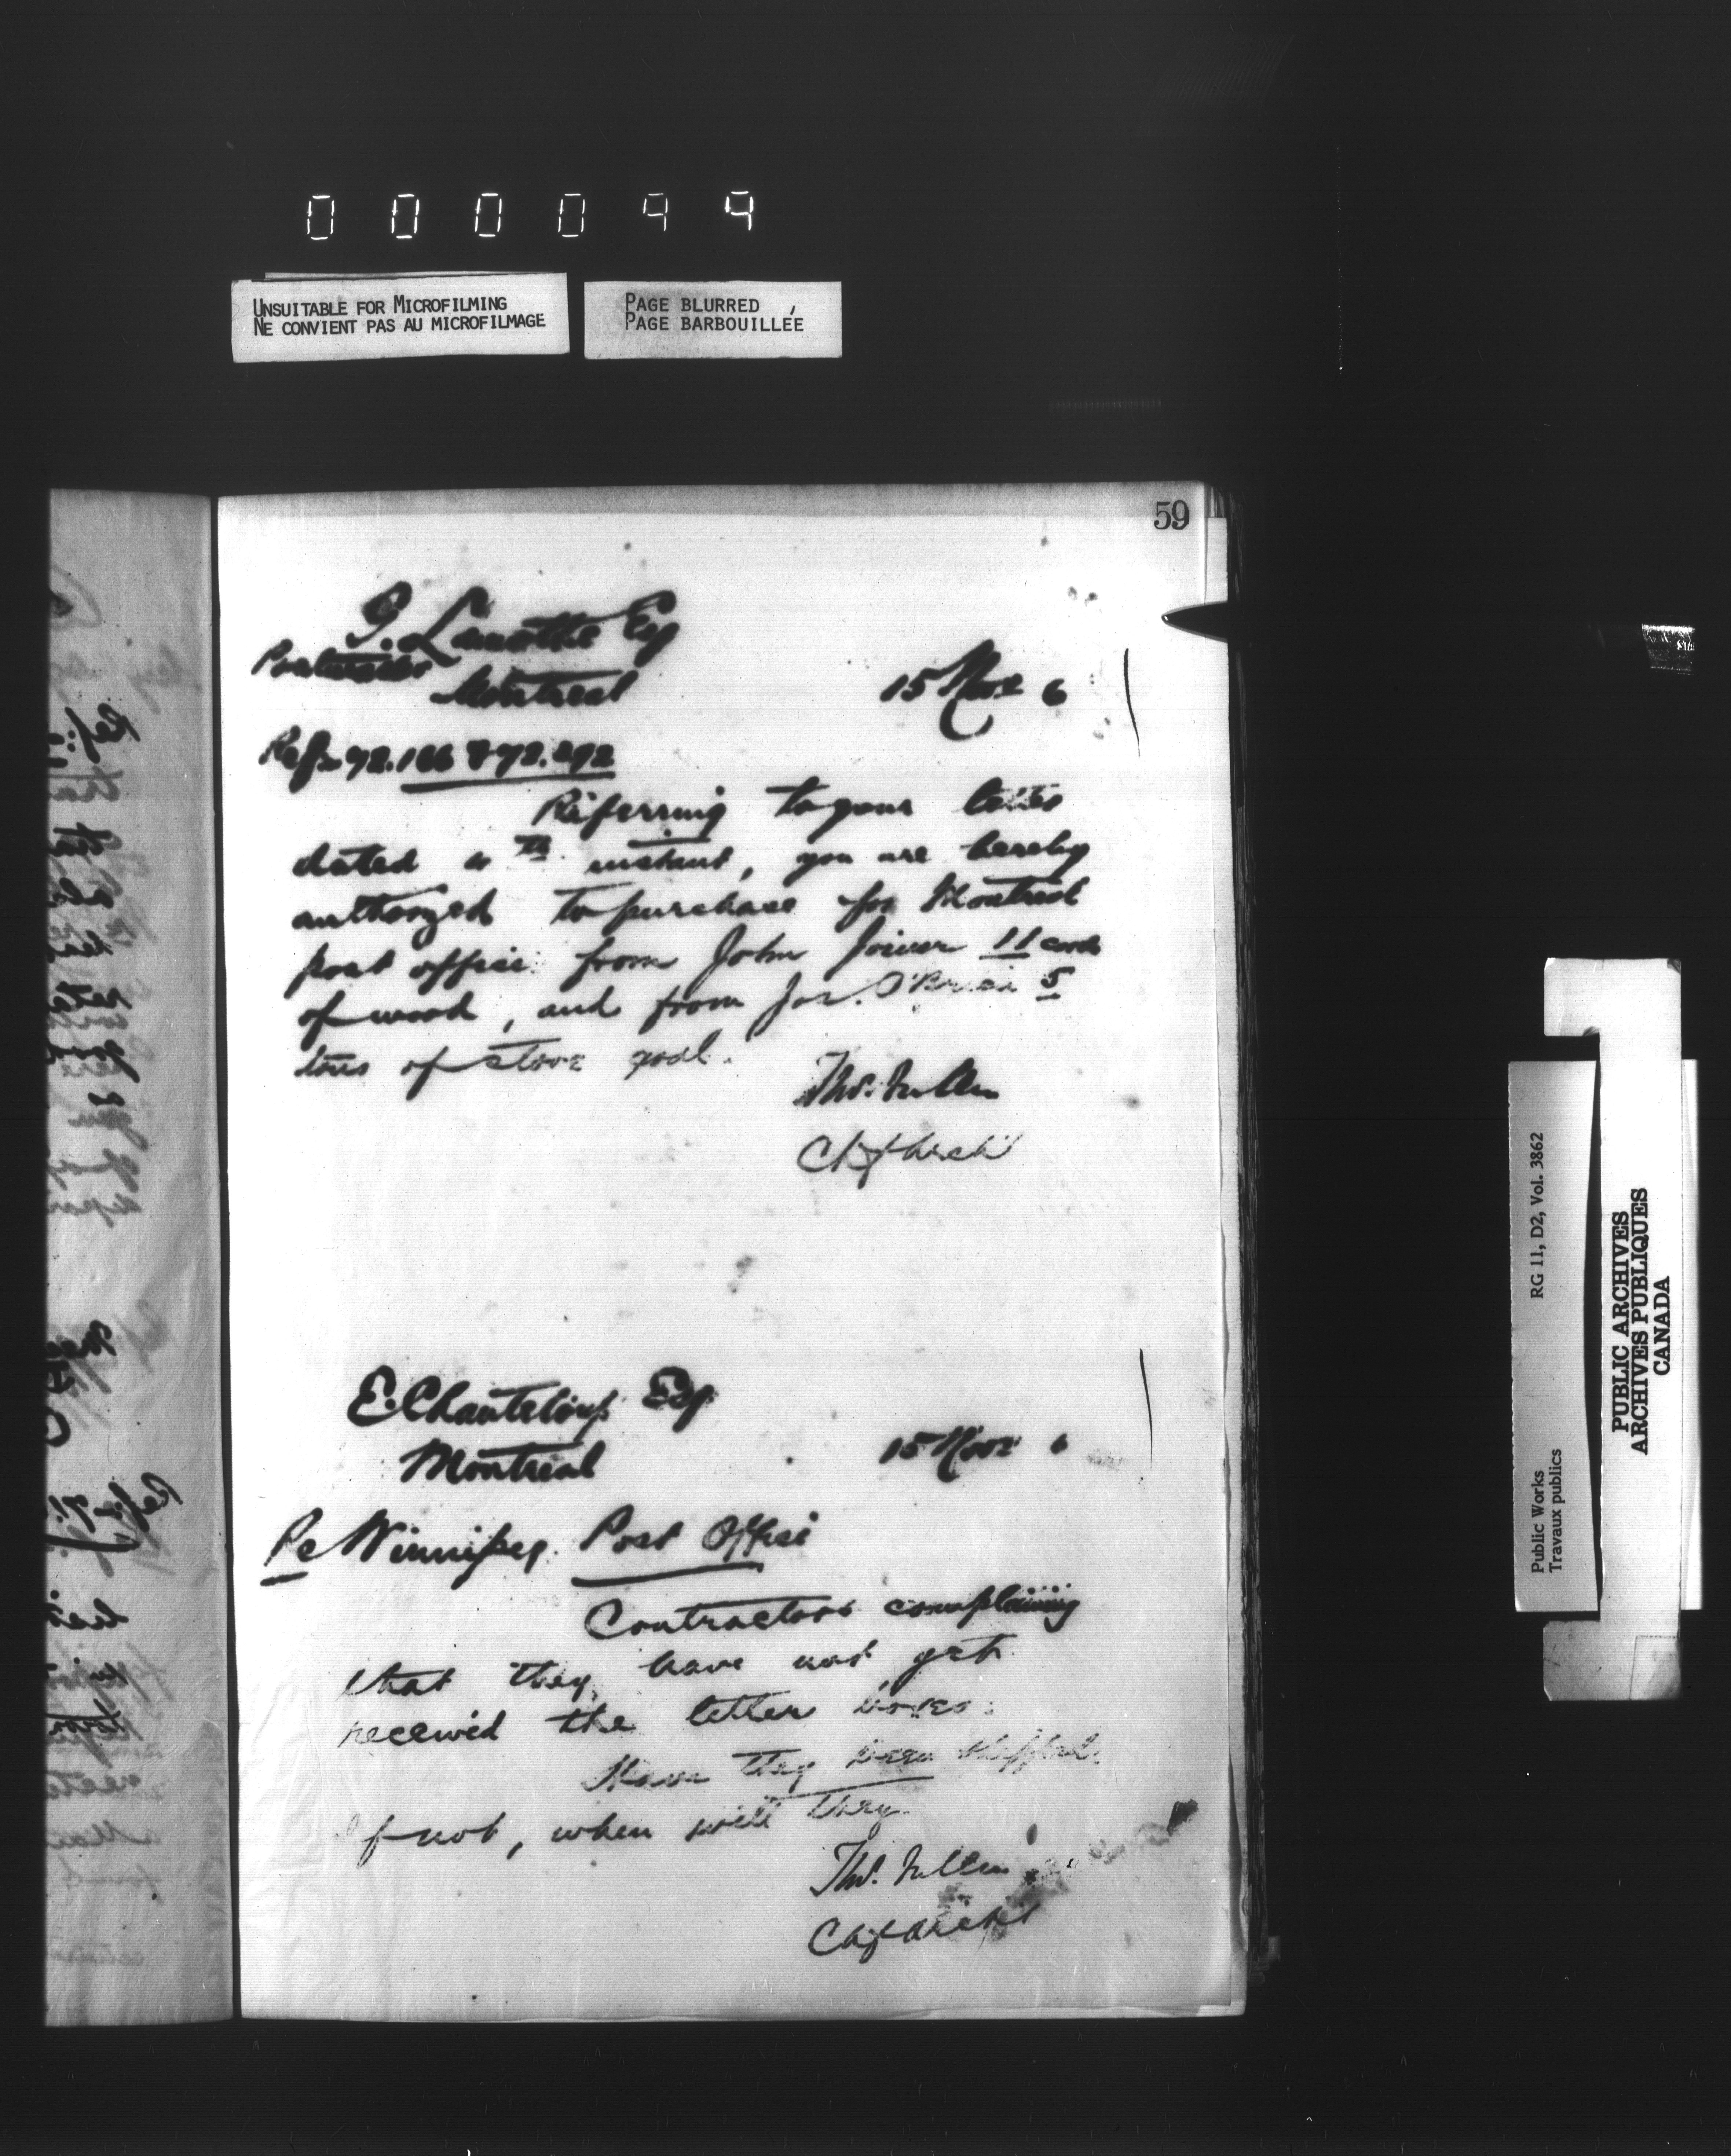 000099
UNSUITABLE FOR MICROFILMING
NE CONVIENT PAS AU MICROFILMAGE
PAGE BLURRED
PAGE BARBOUILLÉE
59
G. Lamothe Esq
Postmaster
Montreal
15 Nov 6
Refs 72.166 & 72.292
Referring to your letter
dated th instant, you are hereby
authorized to purchase for Montreal
post office from John Joiner 11 cords
of wood, and from Jos. O'Brien 5
tons of stove coal.
Thos. Fuller
Ch Archt
E. Chanteloup Esq
Montreal
15 Nov 6
Re Winnipeg Post Office
Contractors complaining
that they have not yet
received the letter boxes.
Have they been shipped.
If not, when will they.
Thos. Fuller
Ch Archt
Public Works
Travaux publics
RG 11, D2, Vol. 3862
PUBLIC ARCHIVES
ARCHIVES PUBLIQUES
CANADA